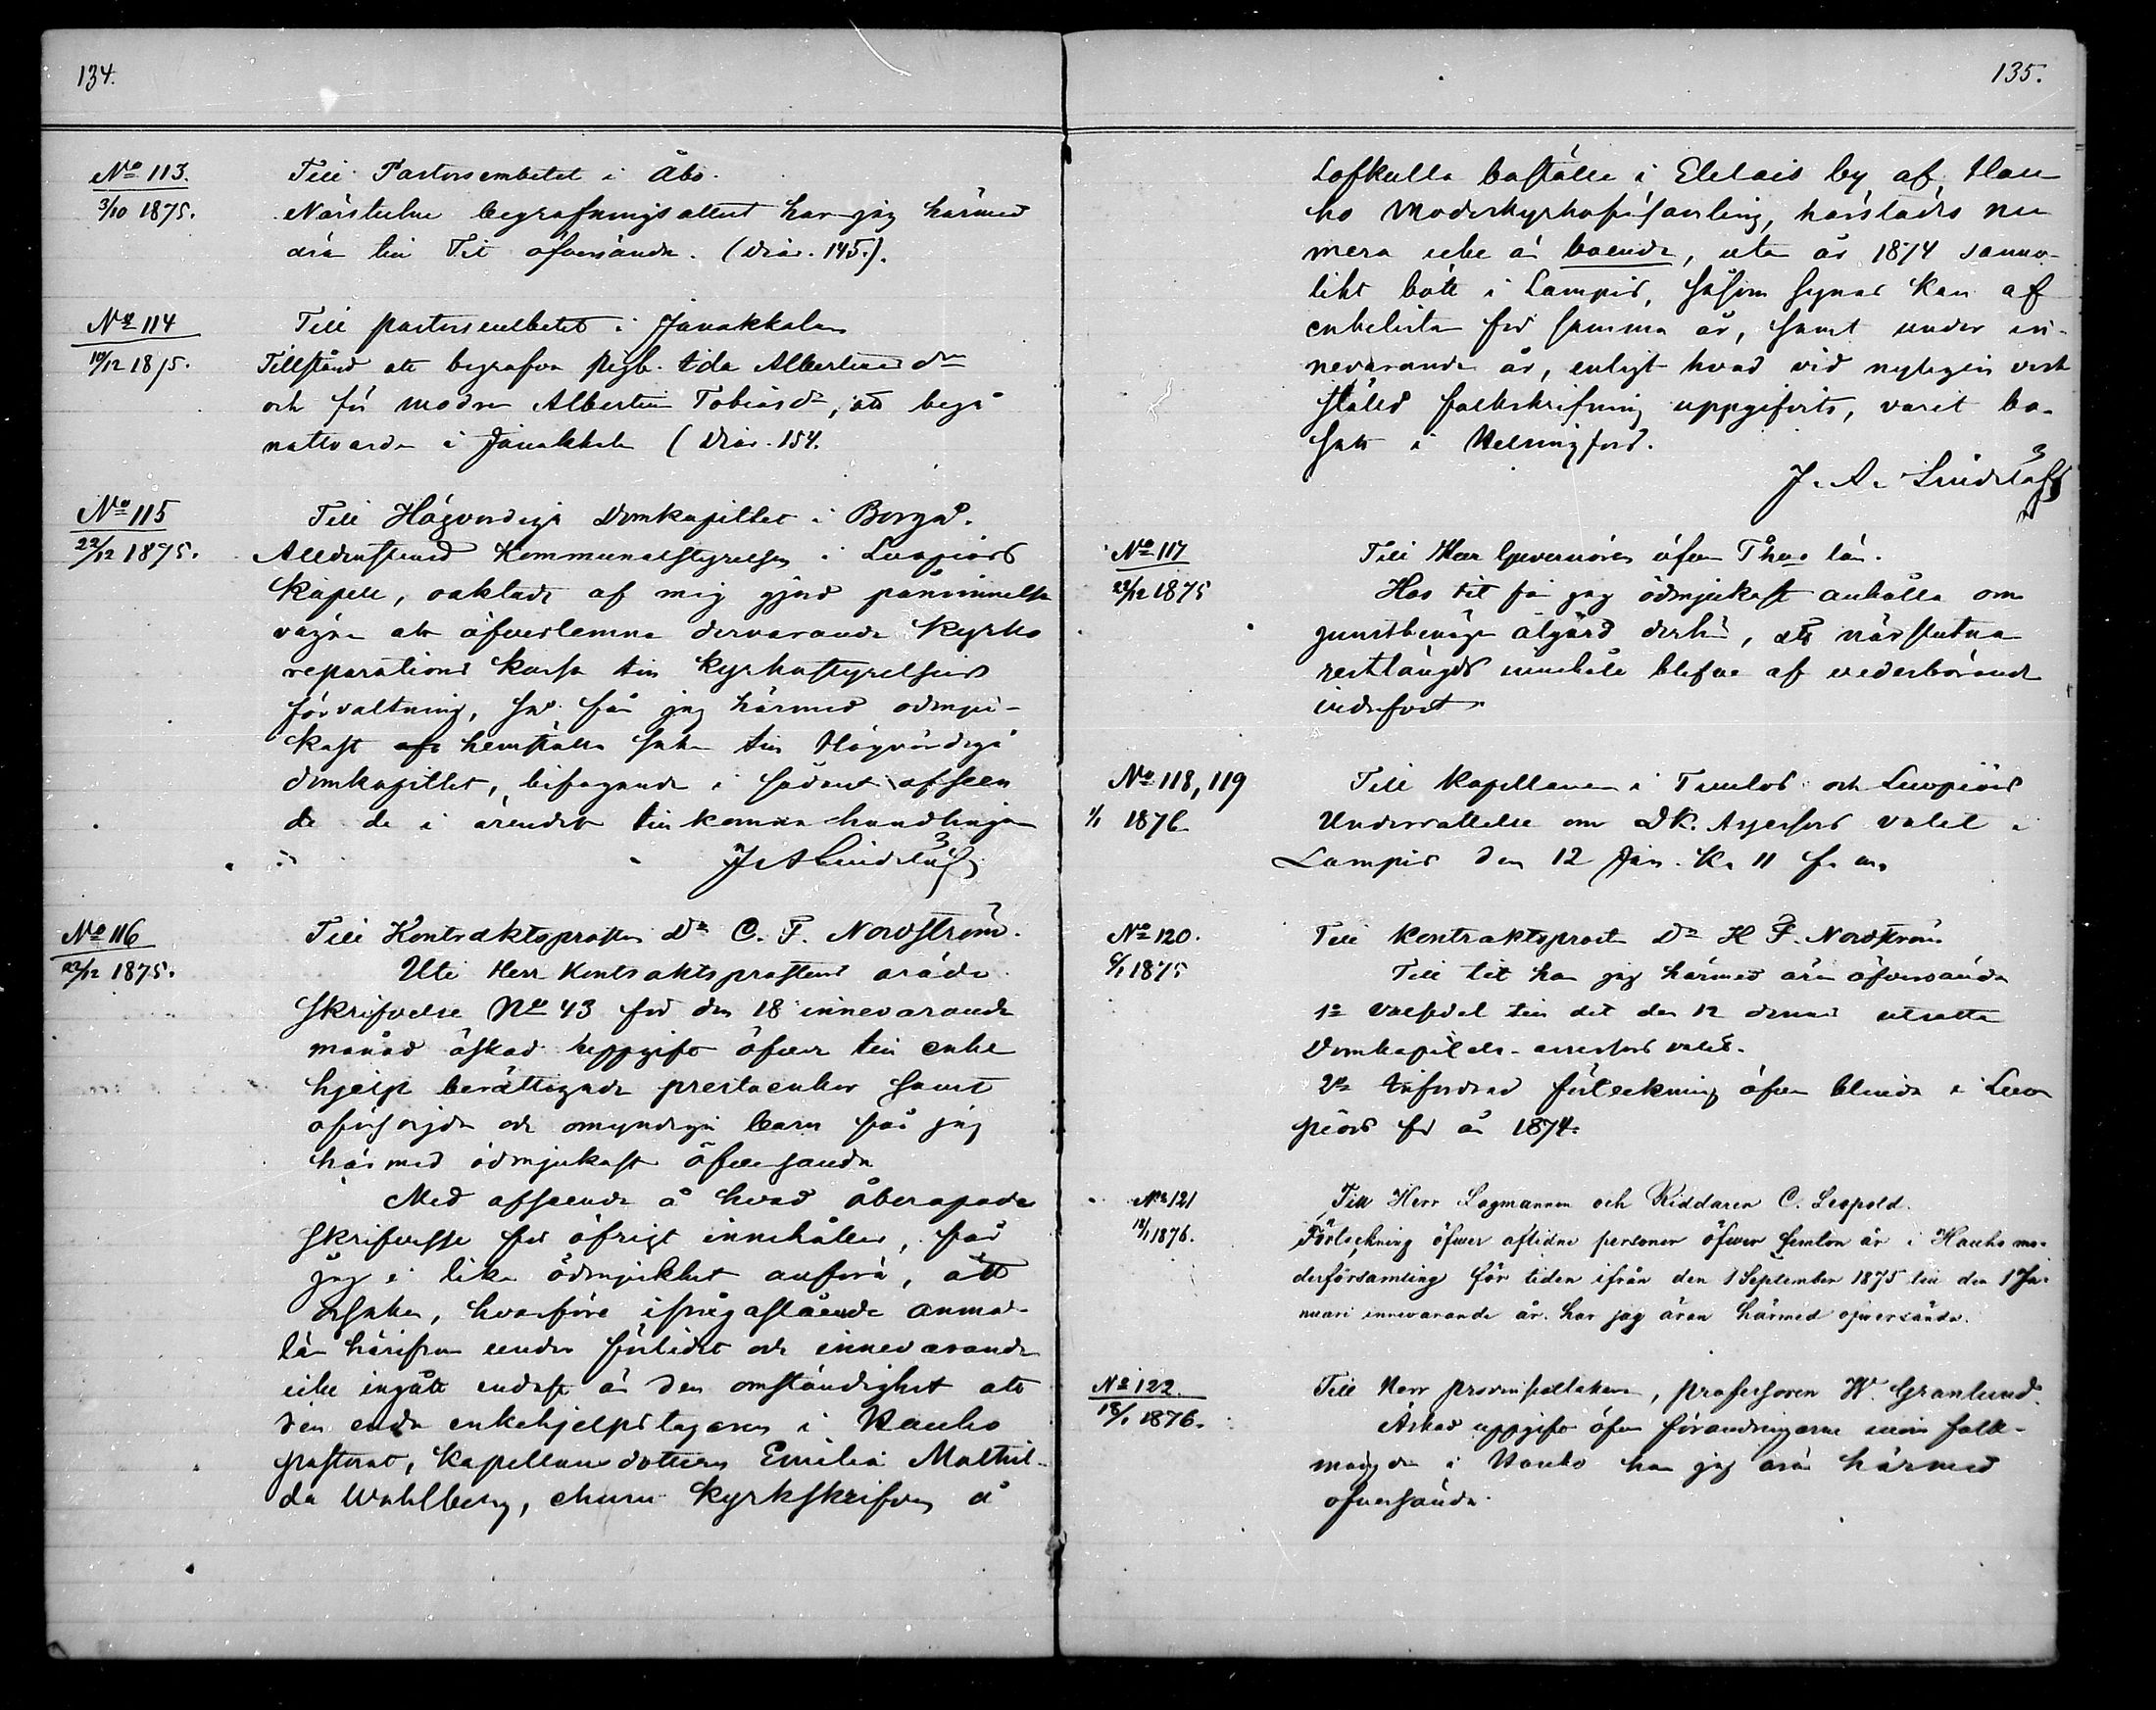 134.
No 113.
3/10 1875.
Till Pastorsembetet i Åbo.
Närslutne begrafningsattest har jag härmed
äran till Tit öfversända. (Diar. 145.).
No 114
10/12 1875.
Till pastorsembetet i Janakkala
Tillstånd att begrafva Ida Albertina dr
och för modren Albertina Tobiasdr, att begå
nattvarden i Janakkala (Diar. 154.
No 115
22/12 1875.
Till Högvördiga Domkapitlet i Borgå.
Alldenstund Kommunalstyrelsen i Luopiois
Kapell, oaktadt af mig gjord påminnelse
vägrar att öfverlemna dervarande Kyrko
reparations kassa till Kyrkostyrelsens
förvaltning, får jag härmed ödmju-
kast hemställa saken till Högvördiga
domkapitlet, bifogande i sådant afseen
de de i ärendet tillkomna handlingar
J A Lindelöf
No 116
22/12 1875.
Till Kontraktsprosten Dr C. F. Nordström.
Uti Herr Kontraktsprostens ärade
skrifvelse No 43 för den 18 innevarande
månad äskad uppgift öfver till enke
hjelp berättigade prestaenkor samt
oförsörjda och omyndiga barn får jag
härmed ödmjukast öfversända
Med afseende å hvad åberopade
skrifvelse för öfrigt innehåller, får
jag i lika ödmjukhet anföra, att
orsaken, hvarföre ifrågastående anmä-
lan härifrån under förlidet och innevarande
icke ingått endast är den omständighet att
den enda enkehjelpstagaren i Hauho
pastorat, kapellansdottern Emilia Mathil-
da Wahlberg, ehuru kyrkskrifven å
135.
Lofkulla boställe i Eteläis by af Hau
ho Moderkyrkoförsamling, härstädes nu
mera icke är boende, utan år 1874 sanno-
likt bott i Lampis, såsom synes kan af
enkelistan för samma år, samt under in-
nevarande år, enligt hvad vid nyligen verk
stäld folkskrifning uppgifvits, varit bo-
satt i Helsingfors.
J. A. Lindelöf
No 117
22/12 1875
Till Herr Guvernören öfver Thus län.
Hos Tit får jag ödmjukast anhålla om
gunstbenägen åtgärd derhän, att närslutna
restlängds innehåll blefve af vederbörande
indrefvet
No 118, 119
1/1 1876
Till Kapellanen i Tuulos och Luopiois
Underrättelse om DK. Assessors valet i
Lampis den 12 Jan. Kl 11 f. m.
No 120.
6/1 1875
Till Kontraktsprosten Dr H F. Nordström
Till tit har jag härmed äran öfversända
1o valsedel till det den 12 dennes utsatta
Domkapitels-assessors valet.
2o infordrad förteckning öfver blinda i Luo
piois för år 1874.
No 121
18/1 1876.
Till Herr Lagmannen och Riddaren C. Leopold.
Förteckning öfwer aflidne personer öfwer femton år i Hauho mo-
derförsamling för tiden ifrån den 1 September 1875 till den 1 Ja-
nuari innevarande år. har jag äran härmed öfwersända.
No 122.
18/1 1876.
Till Herr provinsialläkaren, professoren W. Granlund.
Äskad uppgift öfver förändringarne inom folk-
mängden i Hauho har jag äran härmed
öfversända.